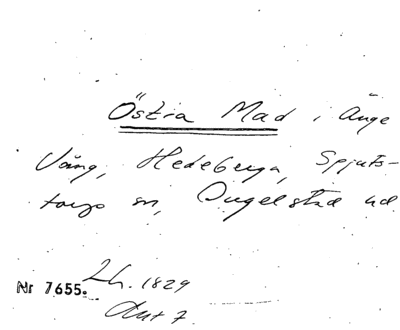 Östra Mad i Änge
Vång, Hedeberga, Spjuts-
torps sn, Ingelstad hd.
Lh. 1829
Nr 7655.
Akt 7